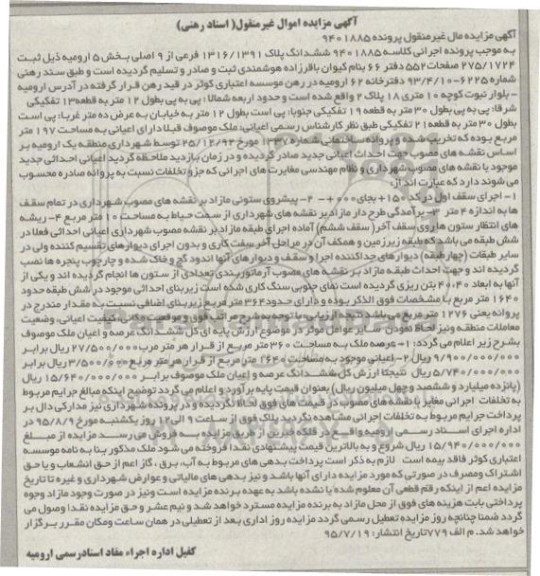 آگهی مزایده اموال غیرمنقول( اسناد رهنی)
آگهی مزایده مال غیرمنقول پرونده ۹۴۰۱۸۸۵
به موجب پرونده اجرائی کلاسه ۹۴۰۱۸۸۵ ششدانگ پلاک ۱۳۱۶/۱۳۹۱ فرعی از ۹ اصلی بخش ۵ ارومیه ذیل ثبت
۲۷۵/۱۷۲۴ صفحات ۵۵۲ دفتر ۶۶ بنام کیوان باقرزاده هوشمندی ثبت و صادر و تسلیم گردیده است و طبق سند رهنی
شماره ۶۲۲۵-۹۳/۴/۱۰ دفترخانه ۶۲ ارومیه در رهن موسسه اعتباری کوثر در قید رهن قرار گرفته در آدرس ارومیه
- بلوار نبوت کوچه ۱۰ متری ۱۸ پلاک ۲ واقع شده است و حدود اربعه شمالا : پی به پی بطول ۱۲ متر به قطعه ۱۳ تفکیکی
شرقا: پی به پی بطول ۳۰ متر به قطعه ۱۹ تفکیکی جنوبا: پی است بطول ۱۲ متر به خیابان به عرض ده متر غربا: پی است
بطول ۳۰ متر به قطعه ۲۱ تفکیکی طبق نظر کارشناس رسمی اعیانی: ملک موصوف قبلا دارای اعیانی به مساحت ۱۹۷ متر
مربع بوده که تخریب شده و پروانه ساختمانی شماره ۱۳۳۷ مورخ ۲۵/۱۲/۹۲ توسط شهرداری منطقه یک ارومیه بر
اساس نقشه های مصوب جهت احداث اعیانی جدید صادر گردیده و در زمان بازدید ملاحظه گردید اعیانی احداثی جدید
موجود با نقشه های مصوب شهرداری و نظام مهندسی مغایرت های اجرائی که جزو تخلفات نسبت به پروانه صادره محسوب
می شوند دارد که عبارتند از:
۱- اجرای سقف اول در کد ۱۵۰+ بجای ۰۰۰+- ۲- پیشروی ستونی مازاد بر نقشه های مصوب شهرداری در تمام سقف
ها به اندازه ۴ متر ۳- برآمدگی طرح دار مازاد بر نقشه های شهرداری از سمت حیاط به مساحت ۱۰ متر مربع ۴- ریشه
های انتظار ستون ها روی سقف آخر( سقف ششم) آماده اجرای طبقه مازاد بر نقشه مصوب شهرداری اعیانی احداثی فعلا در
شش طبقه می باشد که بقیه زیرزمین و همکف آن در مراحل آخر سفت کاری و بدون اجرای دیوارهای تقسیم کننده ولی در
سایر طبقات (چهار طبقه) دیوار های جداکننده اجرا و سقف و دیوارهای آنها اندود گچ و خاک شده و چارچوب پنجره ها نصب
گردیده اند و جهت احداث طبقه مازاد بر نقشه های مصوب آرماتوربندی تعدادی از ستون ها انجام گردیده اند و یکی از
آنها به ابعاد ۴۰*۴۰ بتن ریزی گردیده است نمای جنوبی سنگ کاری شده است زیربنای احداثی موجود در شش طبقه حدود
۱۶۴۰ متر مربع با مشخصات فوق الذکر بوده و دارای حدود ۳۶۴ متر مربع زیربنای اضافی نسبت به مقدار مندرج در
پروانه یعنی ۱۲۷۶ متر مربع می باشد ۲- ارزیابی: با توجه به شرح مراتب فوق و موقعیت مکانی، کیفیت اعیانی، وضعیت
معاملات منطقه و نیز لحاظ نمودن سایر عوامل موثر در موضوع ارزش پایه ای کل ششدانگ عرصه و اعیان ملک موصوف
بشرح زیر اعلام می گردد: ۱- عرصه ملک به مساحت ۳۶۰ متر مربع از قرار هر متر مربع ۲۷/۵۰۰/۰۰۰ ریال برابر
۹/۹۰۰/۰۰۰/۰۰۰ ریال ۲- اعیانی موجود به مساحت ۱۶۴۰ متر مربع از قرار هر متر مربع ۳/۵۰۰/۰۰۰ ریال برابر
۵/۷۴۰/۰۰۰/۰۰۰ ریال نتیجتا ارزش کل ششدانگ عرصه و اعیان ملک موصوف برابر ۱۵/۶۴۰/۰۰۰/۰۰۰ ریال
(پانزده میلیارد و ششصد و چهل میلیون ریال) بعنوان قیمت پایه برآورد و اعلام می گردد توضیح اینکه مبالغ جرایم مربوط
به تخلفات اجرائی مغایر با نقشه های مصوب در قیمت های فوق لحاظ نگردیده و در پرونده شهرداری نیز مدارکی دال بر
پرداخت جرایم مربوط به تخلفات اجرائی مشاهده نگردید پلاک فوق از ساعت ۹ الی ۱۲ روز یکشنبه مورخ ۹۵/۸/۹ در
اداره اجرای اسناد رسمی ارومیه واقع در فلکه خیبر از طریق مزایده به فروش می رسد مزایده از مبلغ
۱۵/۹۴۰/۰۰۰/۰۰۰ ریال شروع و به بالاترین قیمت پیشنهادی نقدا فروخته می شود ملک مذکور بنا به نامه موسسه
اعتباری کوثر فاقد بیمه است لازم به ذکر است پرداخت بدهی های مربوط به آب، برق، گاز اعم از حق انشعاب و یا حق
اشتراک و مصرف در صورتی که مورد مزایده دارای آنها باشد و نیز بدهی های مالیاتی و عوارض شهرداری و غیره تا تاریخ
مزایده اعم از اینکه رقم قطعی آن معلوم شده یا نشده باشد به عهده برنده مزایده است و نیز در صورت وجود مازاد وجوه
پرداختی بابت هزینه های فوق از محل مازاد به برنده مزایده مسترد خواهد شد و نیم عشر و حق مزایده نقدا وصول می
گردد ضمنا چنانچه روز مزایده تعطیل رسمی گردد مزایده روز اداری بعد از تعطیلی در همان ساعت و مکان مقرر برگزار
خواهد شد. م الف ۷۷۹ تاریخ انتشار: ۹۵/۷/۱۹
کفیل اداره اجراء مفاد اسناد رسمی ارومیه